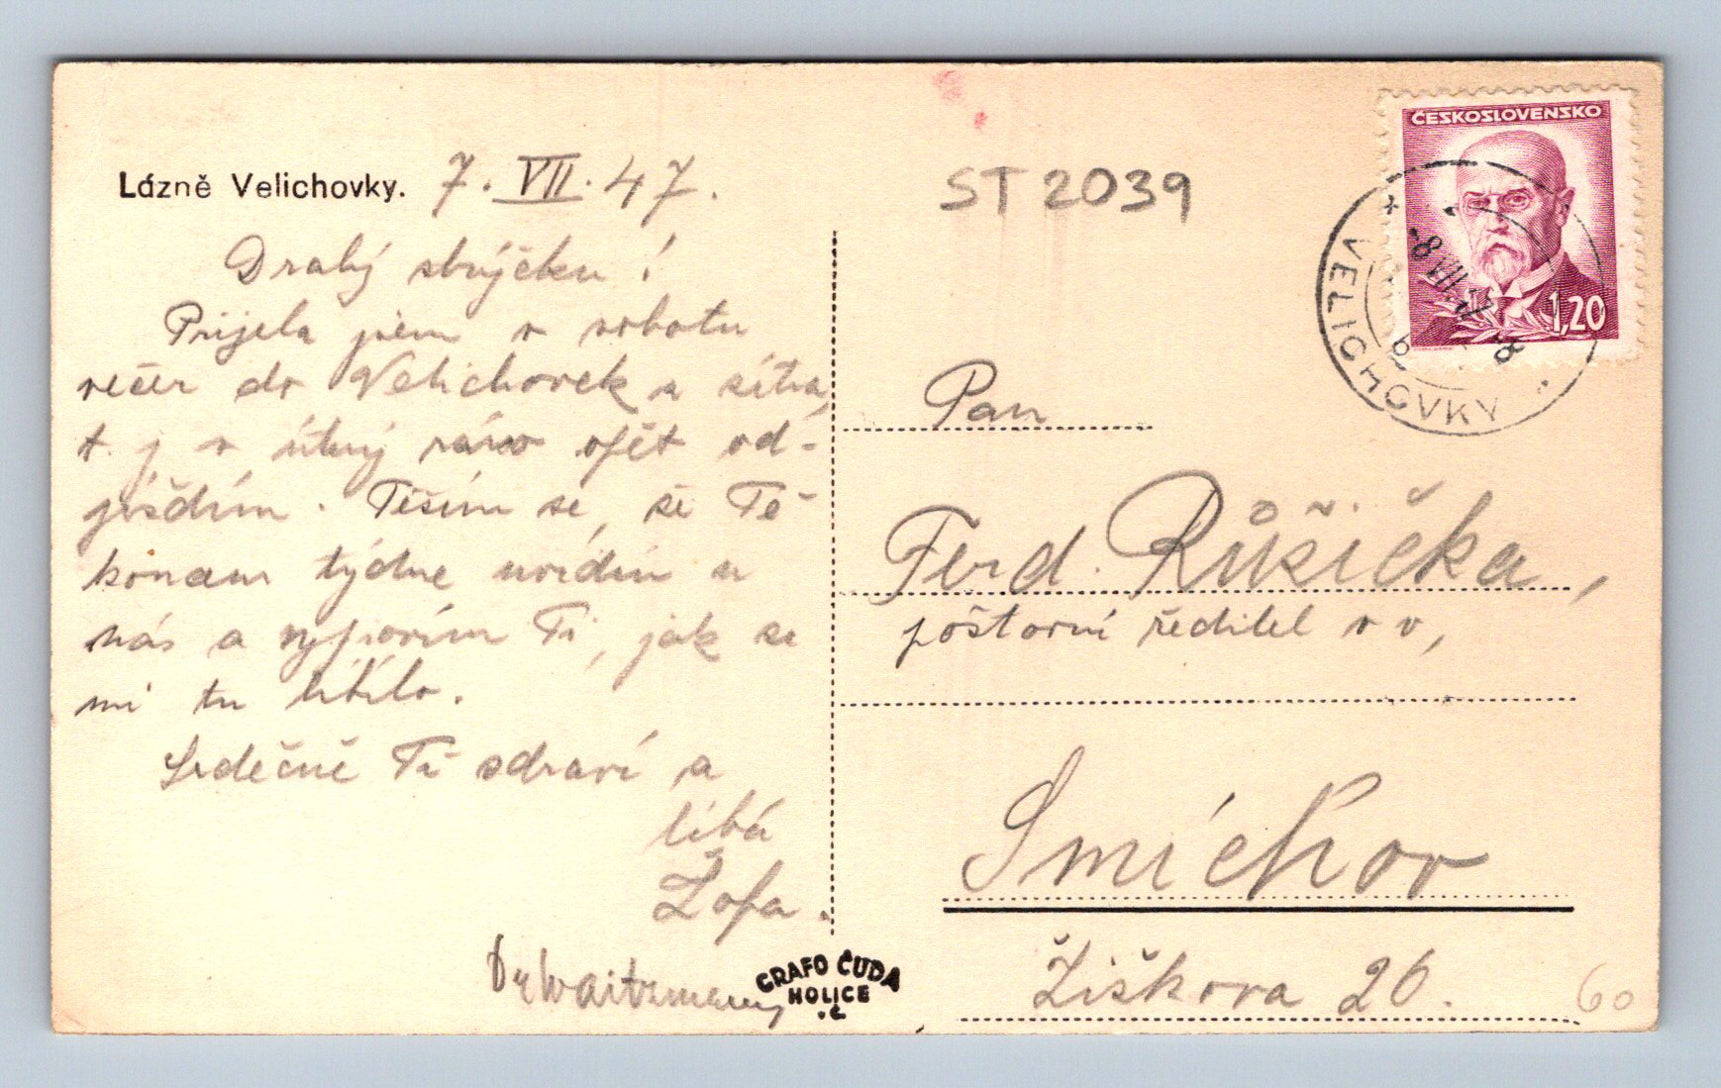 Lázně Velichovky. 7. VII. 47.
Drahý strýčku !
Přijela jsem v sobotu
večer do Velichovek a zítra,
t. j v úterý ráno opět od-
jíždím. Těším se, že Tě
koncem týdne uvidím u
nás a vypovím Ti, jak se
mi tu líbilo.
Srdečně Tě zdraví a
líbá
Žofa.
Dr Waitzmann
GRAFO ČUDA
HOLICE
ST 2039
ČESKOSLOVENSKO
1,20
VELICHOVKY
Pan
Ferd. Růžička,
poštovní ředitel v v,
Smíchov
Žižkova 26.
60